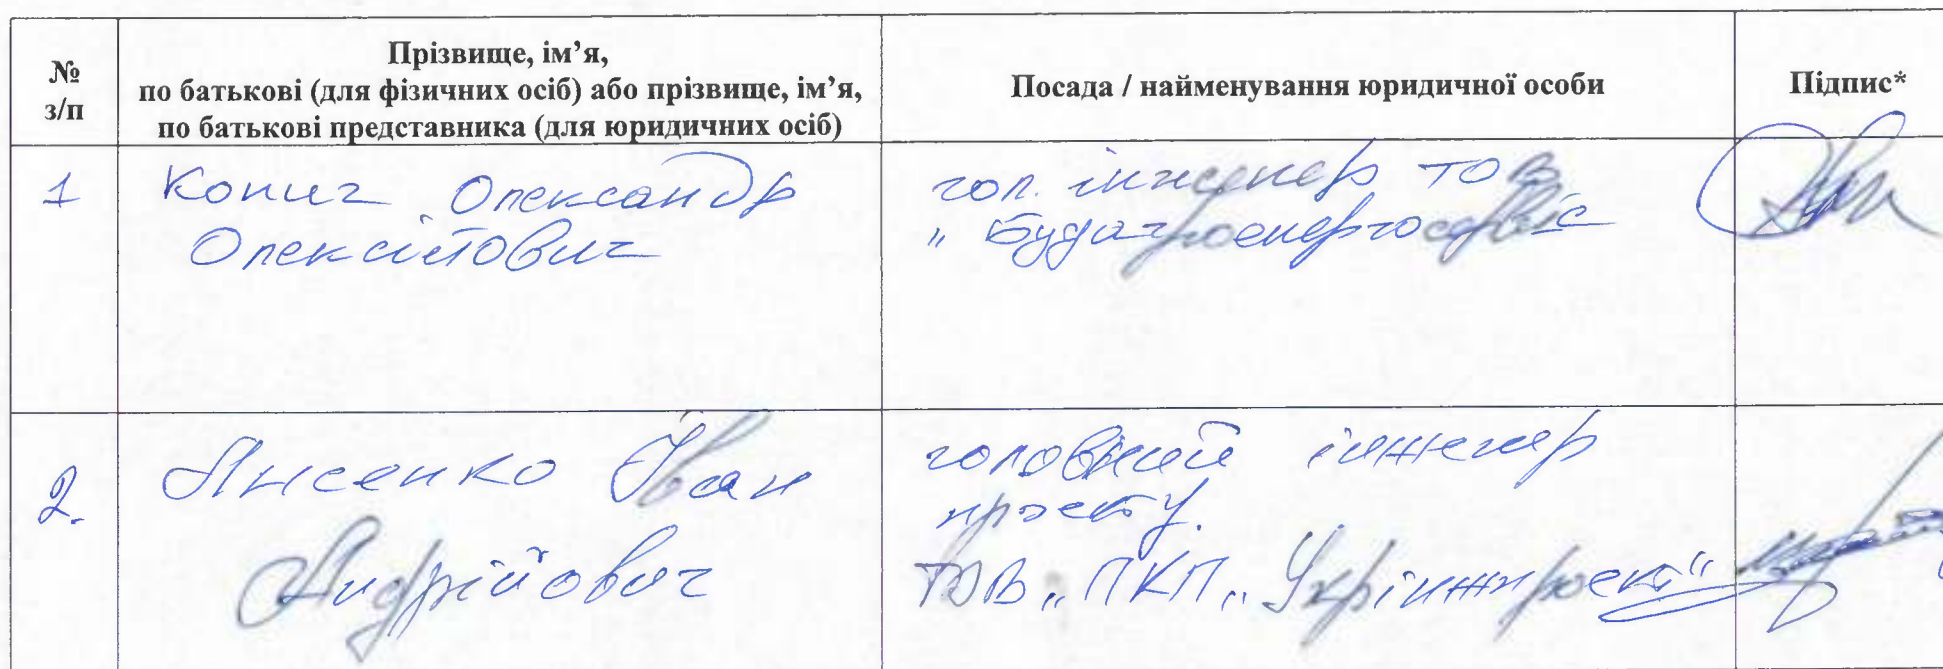 №
з/п
Прізвище, ім’я,
по батькові (для фізичних осіб) або прізвище, ім’я,
по батькові представника (для юридичних осіб)
Посада / найменування юридичної особи
Підпис*
1
Копич Олександр
Олексійович
гол. інженер ТОВ
„Будагроенергосервіс
2.
Лисенко Іван
Андрійович
головний інженер
проекту.
ТОВ „ПКП „Укрінжпроект“